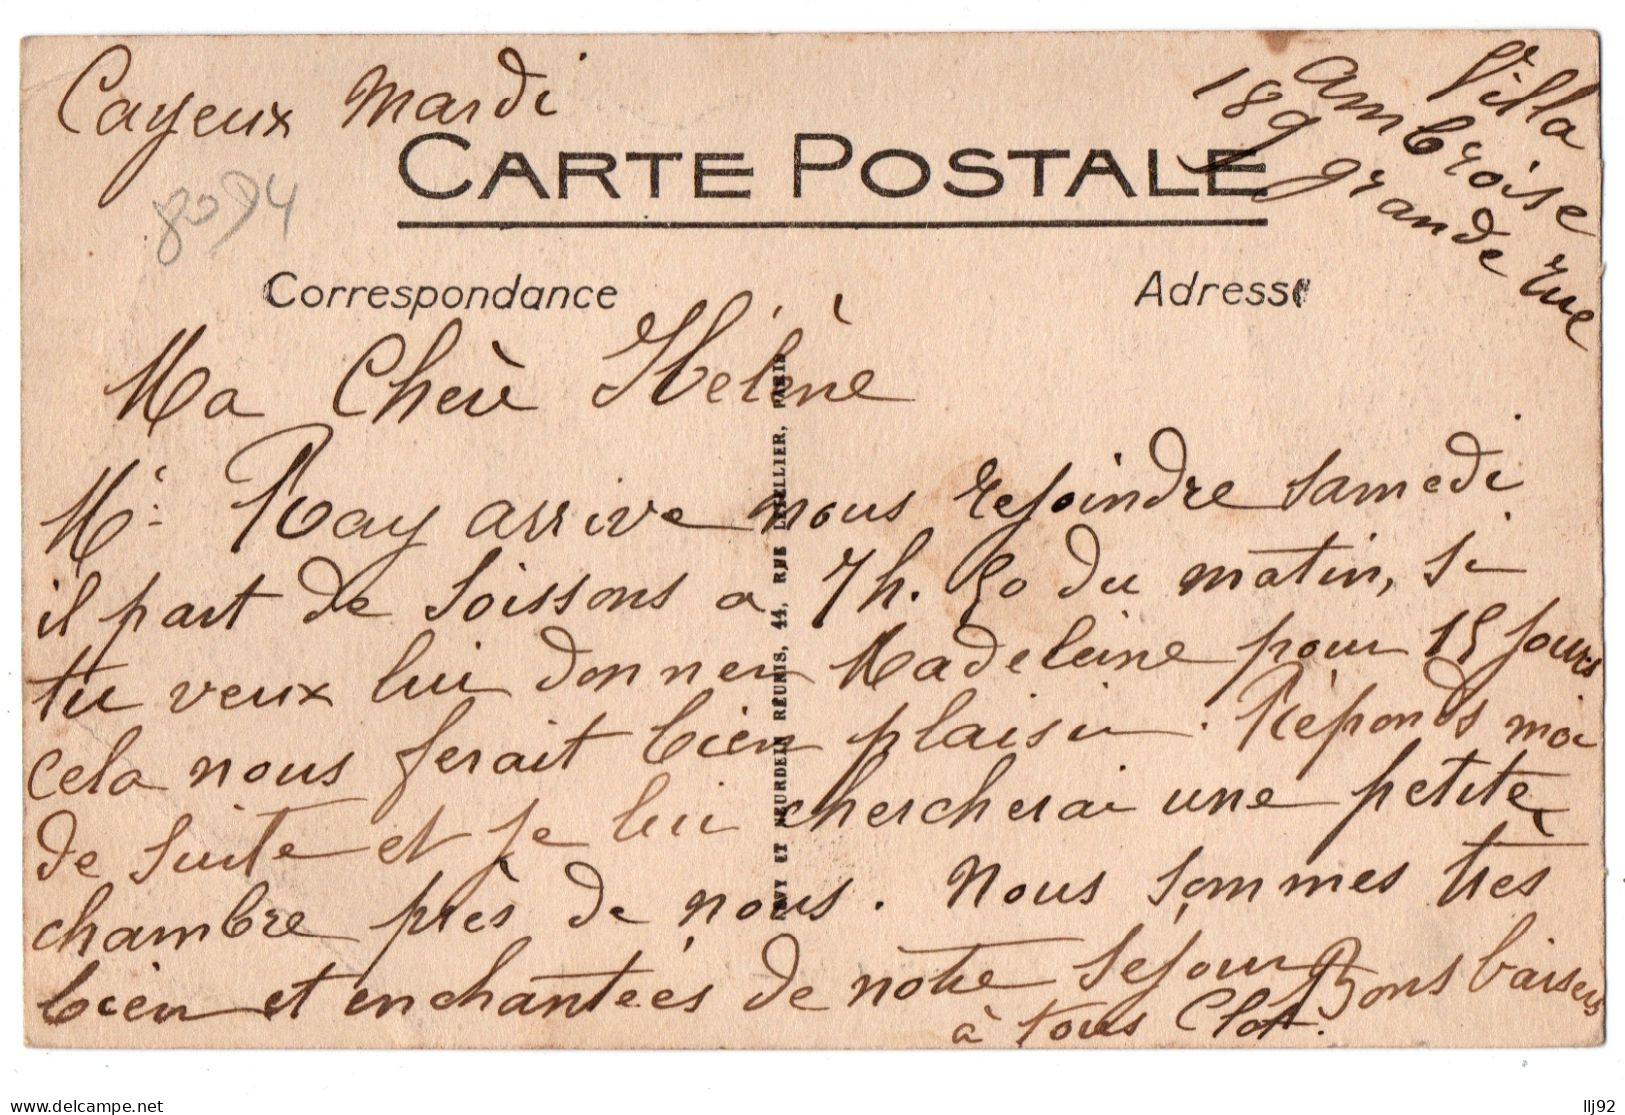 Cayeux Mardi
Villa
Ambroise
189 grande rue
8094
CARTE POSTALE
Correspondance
Adresse
Ma Chère Hélène
Mr Ray arrive nous rejoindre samedi
il part de Soissons a 7h. 50 du matin, si
tu veux lui donner Madeleine pour 15 jours
cela nous ferait bien plaisir. Réponds moi
de suite et je lui chercherai une petite
chambre près de nous. Nous sommes très
bien et enchantées de notre séjour Bons baisers
à tous Clot.
LÉVY ET NEURDEIN RÉUNIS, 44, RUE LETELLIER, PARIS
delcampe.net
llj92